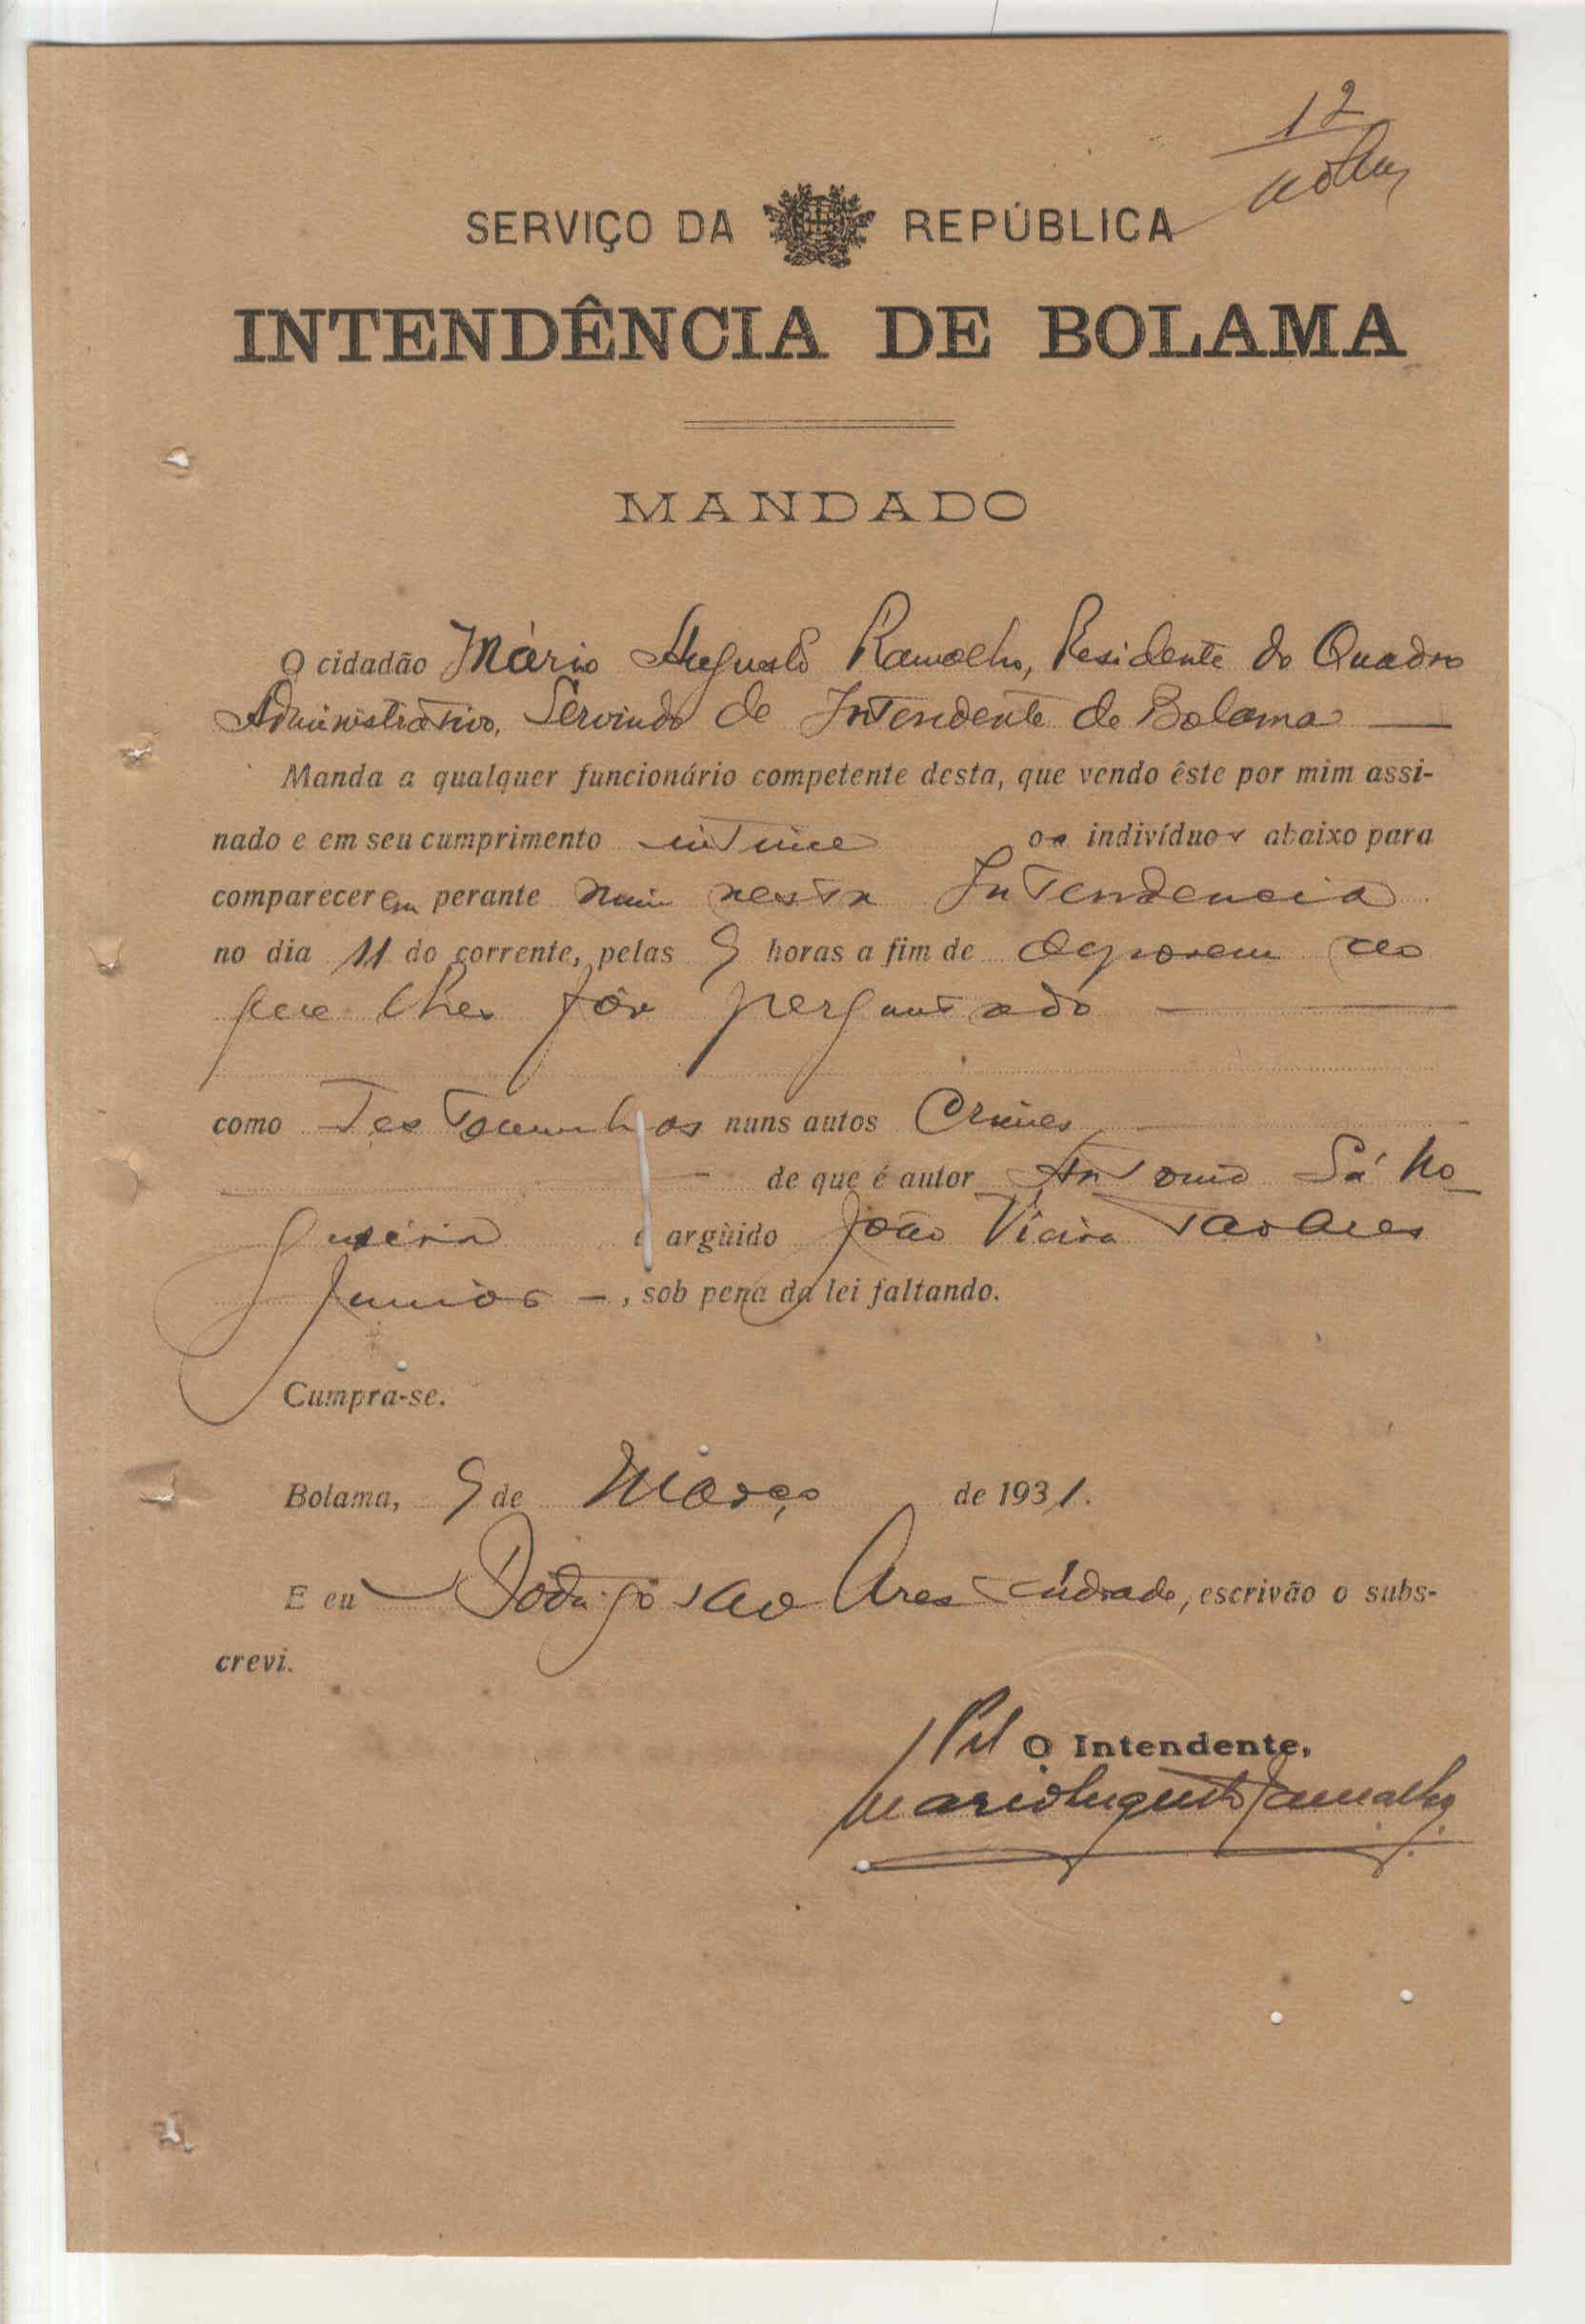 12
SERVIÇO DA REPÚBLICA
INTENDÊNCIA DE BOLAMA
MANDADO
O cidadão Mário Augusto Ramalho, Residente do Quadro
Administrativo, Servindo de Intendente de Bolama
Manda a qualquer funcionário competente desta, que vendo êste por mim assi-
nado e em seu cumprimento intime os indivíduos abaixo para
comparecerem perante mim nesta Intendencia
no dia 11 do corrente, pelas 9 horas a fim de deporem ao
que lhes fôr perguntado
como Testemunhas nuns autos Crimes
de que é autor Antonio Sá No-
gueira e argùido João Vieira Tavares
Junior -, sob pena da lei faltando.
Cumpra-se.
Bolama, 9 de Março de 1931.
E eu Rodrigo Tavares Andrade, escrivão o subs-
crevi.
O Intendente,
Mario Augusto Ramalho